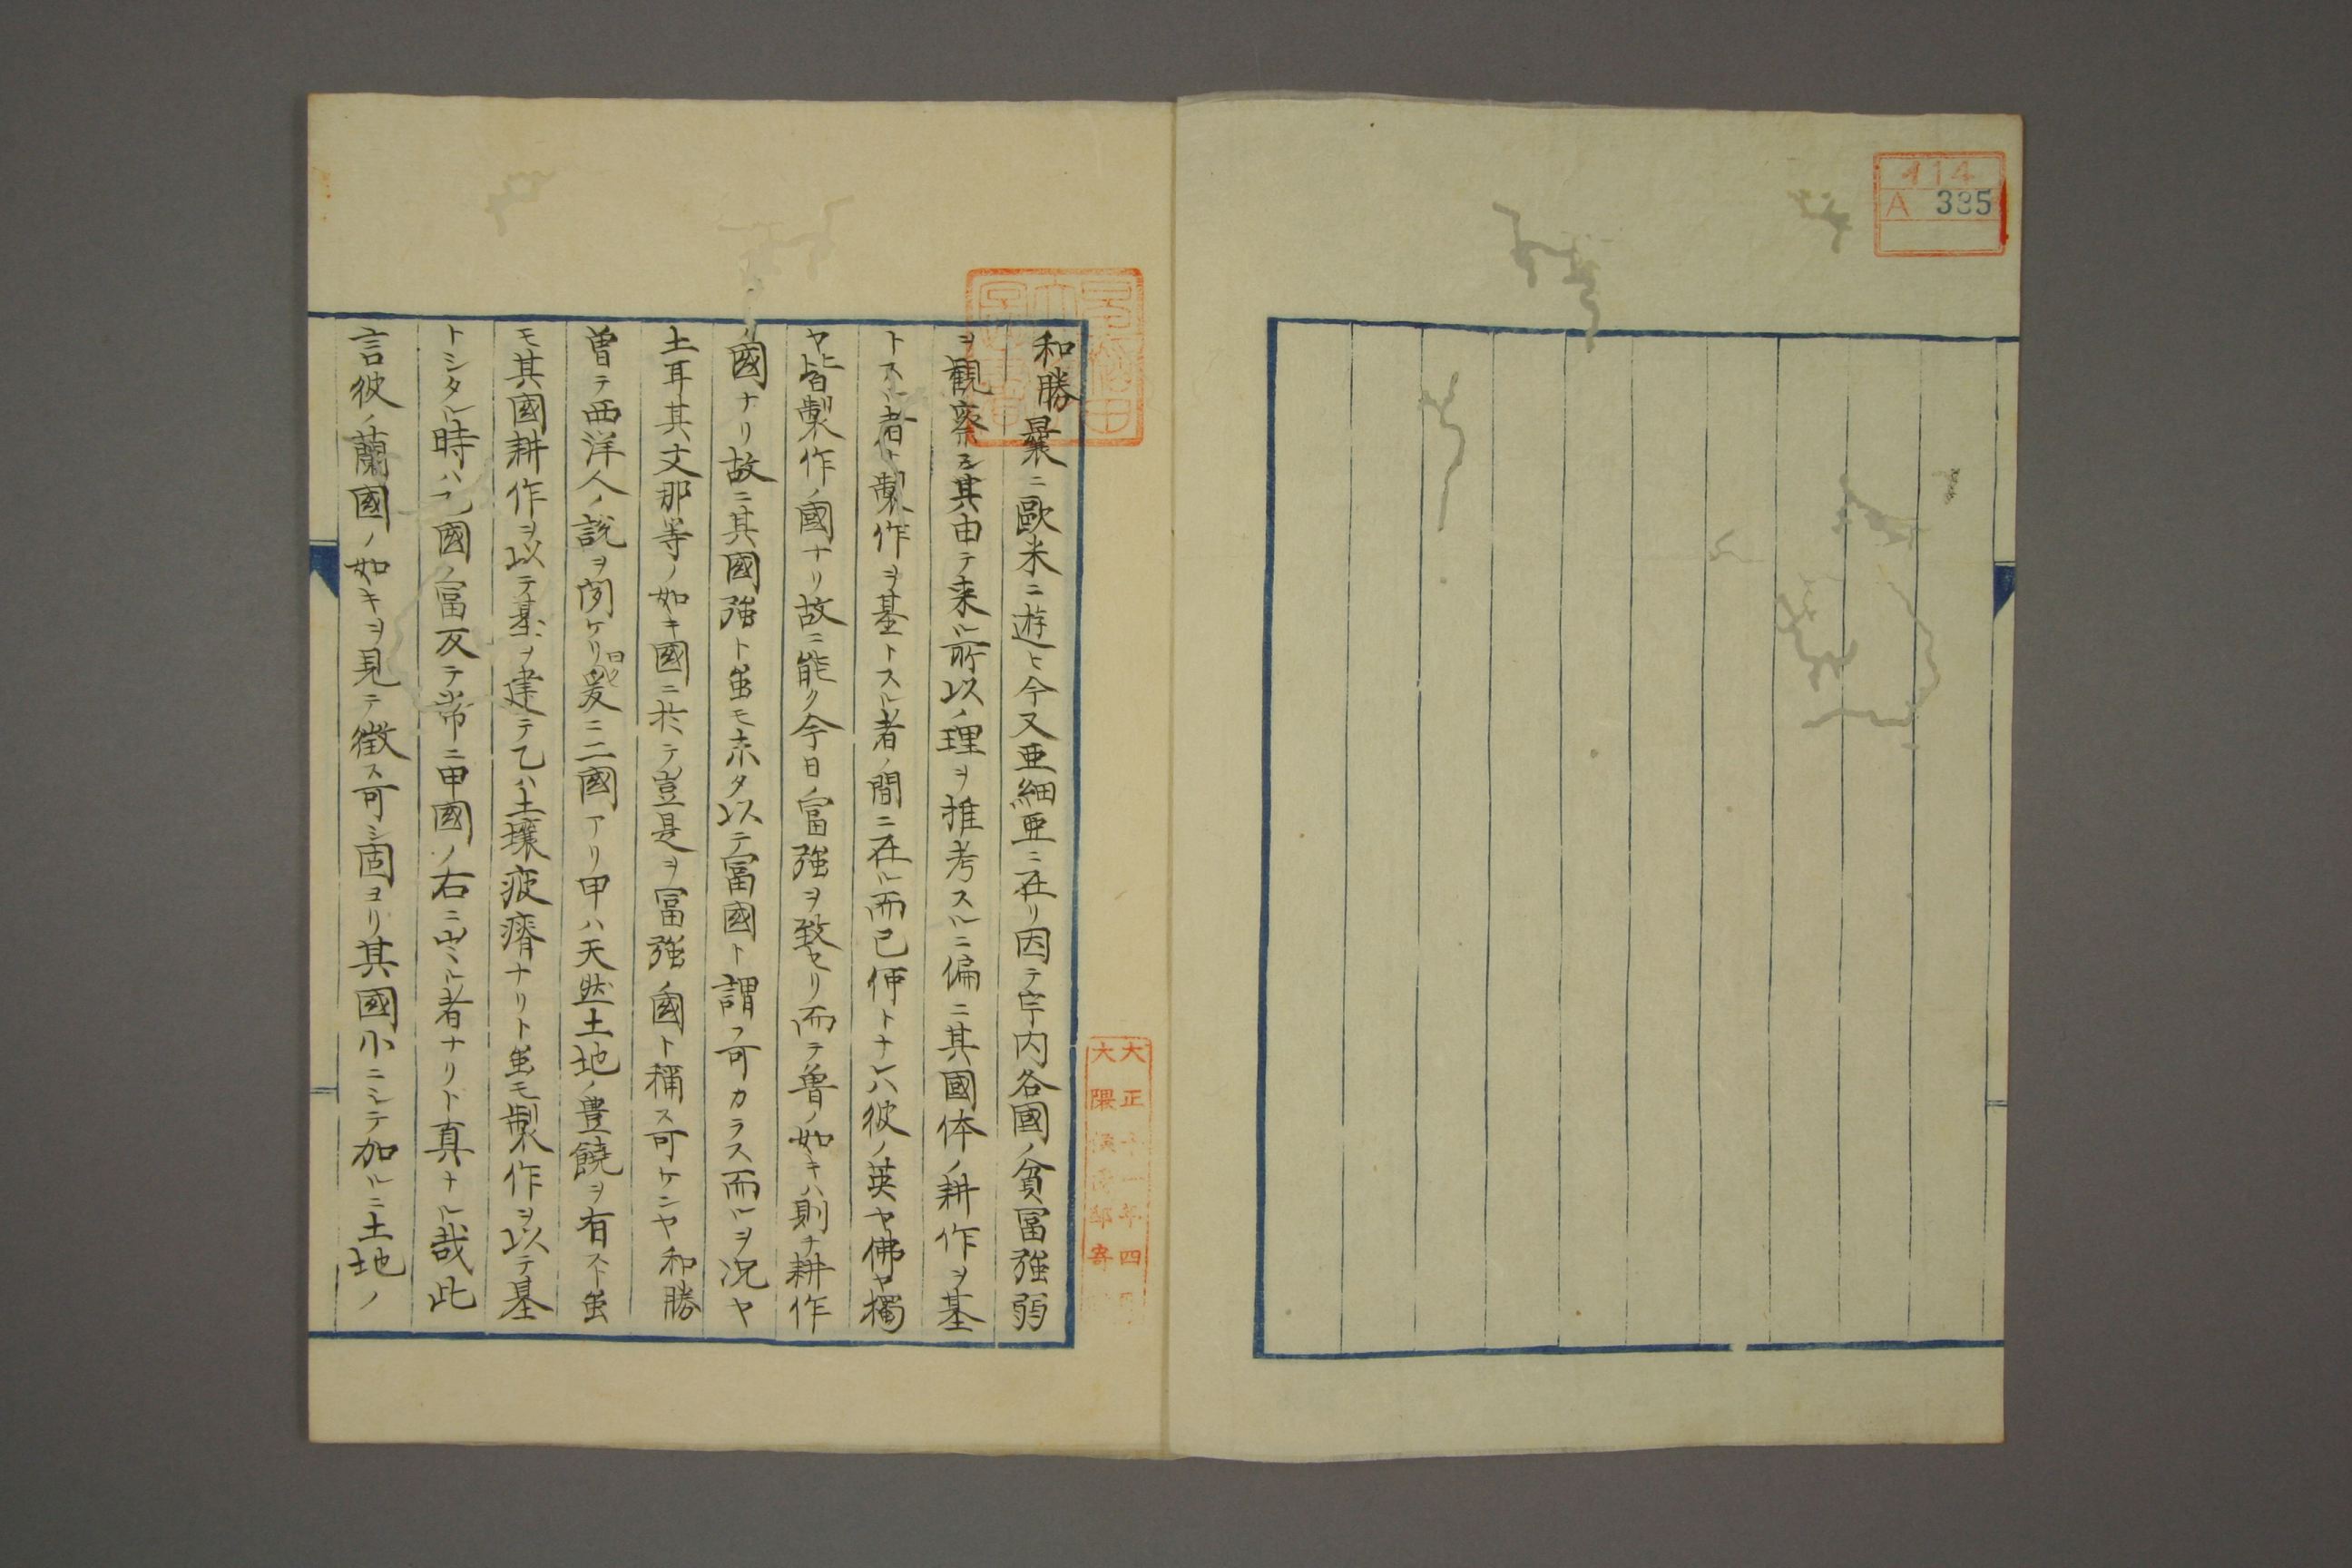 414
A 335
大正十一年四月
大隈侯爵邸寄
和勝曩ニ歐米ニ遊ヒ今又亜細亜ニ在リ因テ宇内各國ノ貧富強弱
ヲ観察シ其由テ来ル所以ノ理ヲ推考スルニ偏ニ其國体ノ耕作ヲ基
トスル者ト製作ヲ基トスル者ノ間ニ在ル而已何トナレハ彼ノ英ヤ佛ヤ獨
ヤ皆製作ノ國ナリ故ニ能ク今日ノ富強ヲ致セリ而テ魯ノ如キハ則チ耕作
ノ國ナリ故ニ其國強ト虽モ未タ以テ富國ト謂フ可カラス而ルヲ况ヤ
土耳其支那等ノ如キ國ニ於テ豈是ヲ富強ノ國ト稱ス可ケンヤ和勝
曽テ西洋人ノ説ヲ聞ケリ曰ク爰ニ二國アリ甲ハ天然土地ノ豊饒ヲ有スト虽
モ其國耕作ヲ以テ基ヲ建テ乙ハ土壌疲瘠ナリト虽モ製作ヲ以テ基
トシタル時ハ乙國ノ富反テ常ニ甲國ノ右ニ出ル者ナリト真ナル哉此
言彼ノ蘭國ノ如キヲ見テ徴ス可シ固ヨリ其國小ニシテ加ルニ土地ノ